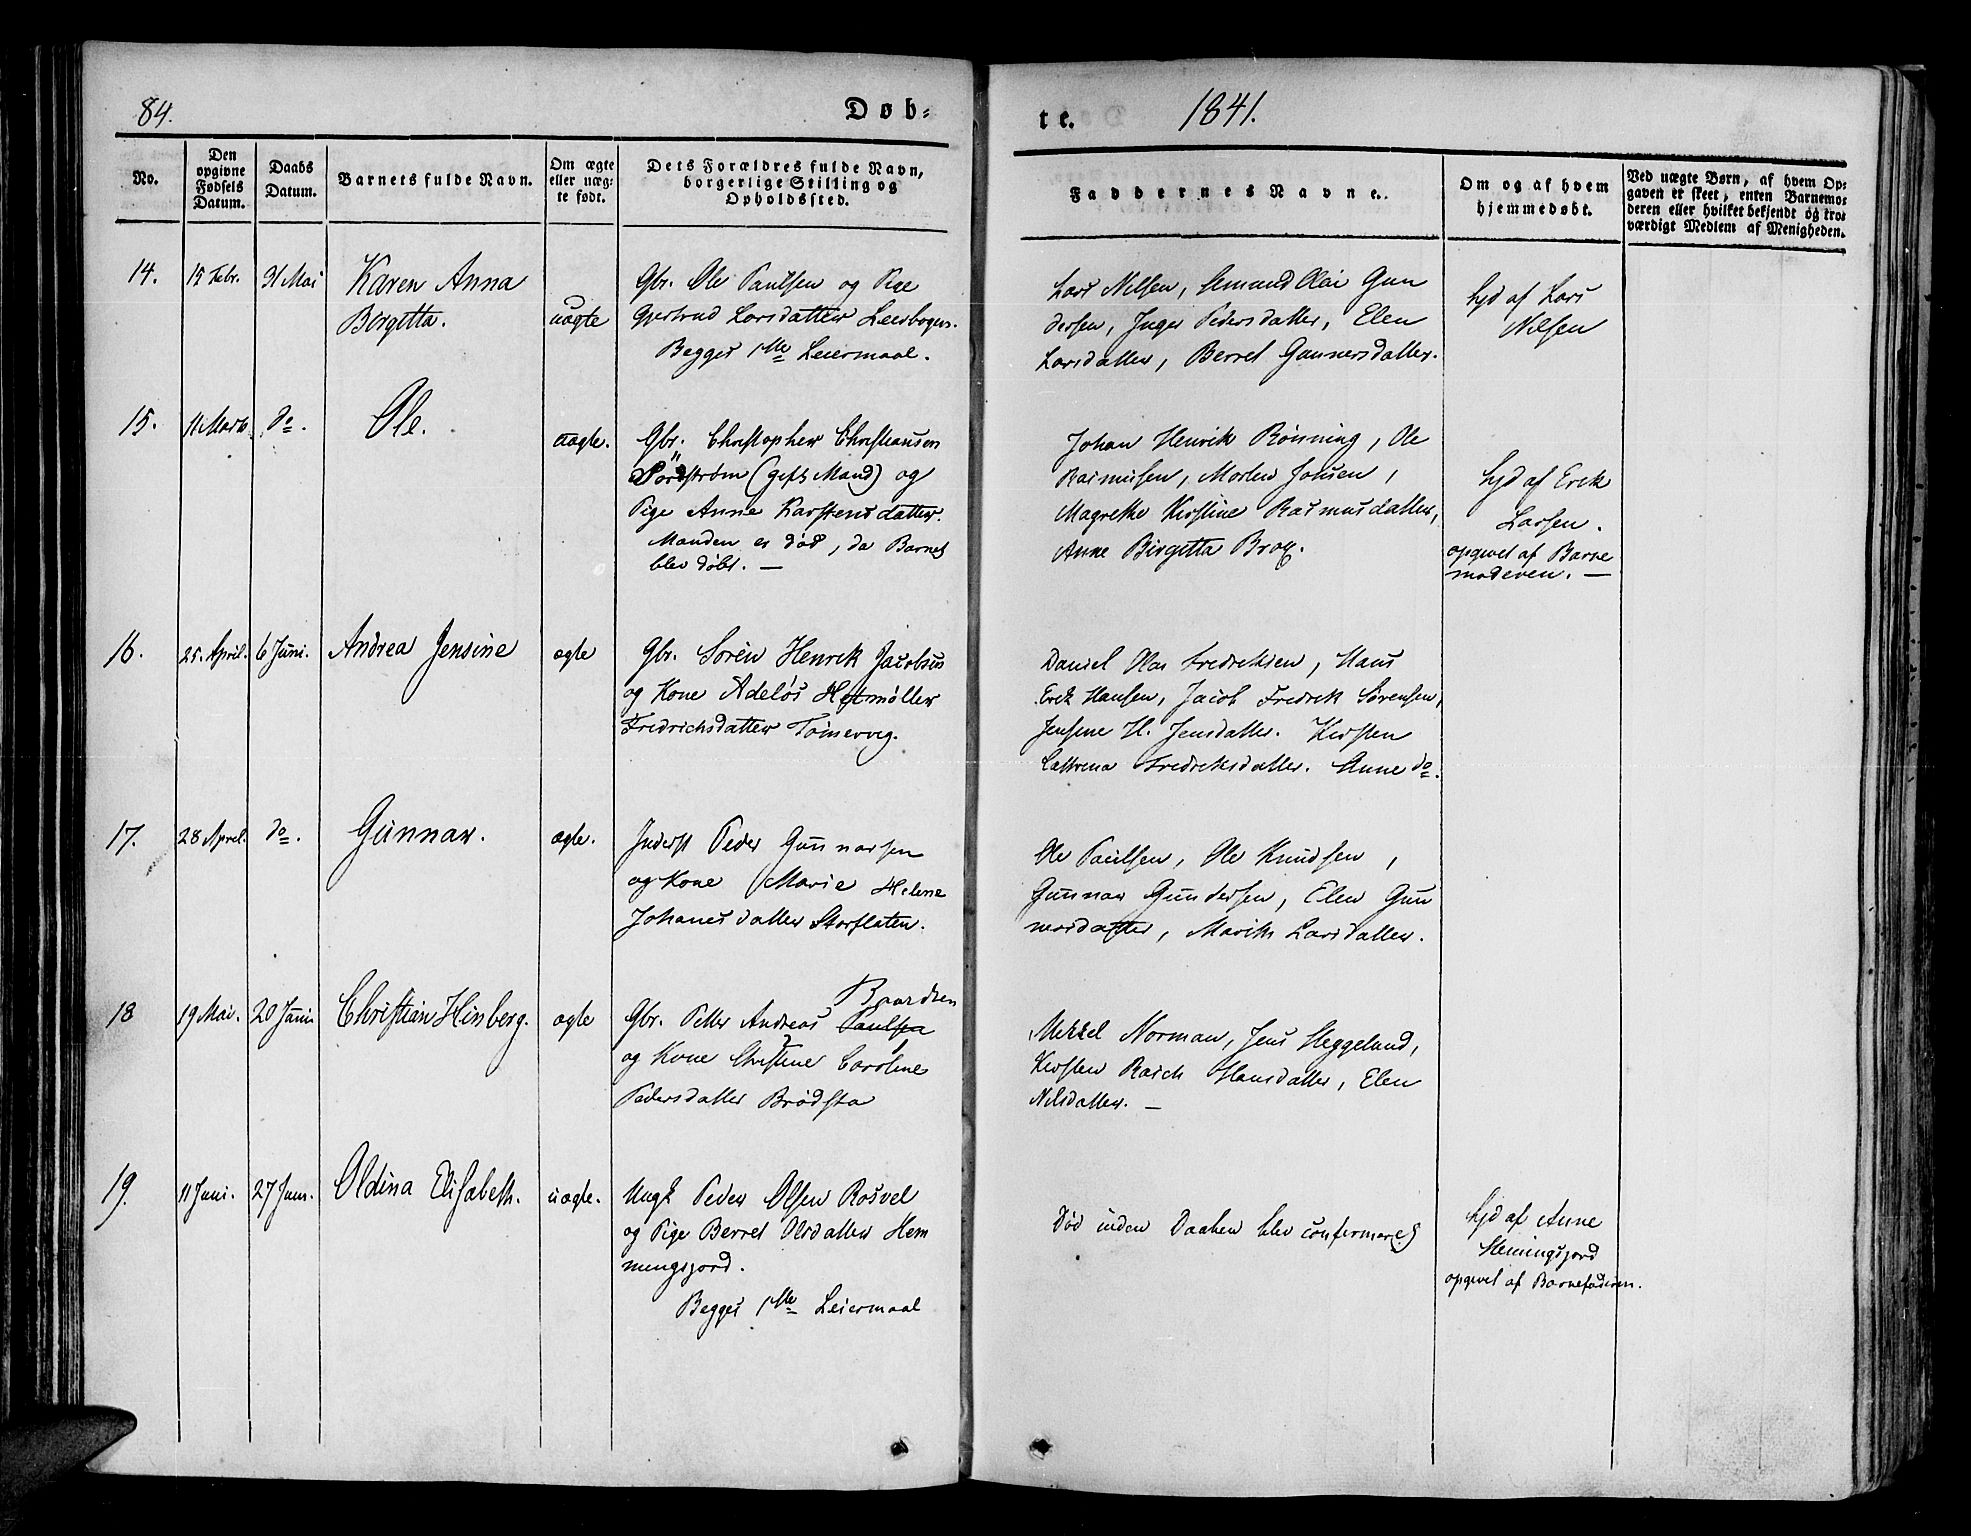 84.
Döb-
te.
1841.
No.
Den
opgivne
Fødsels
Datum.
Daabs
Datum.
Barnets fulde Navn.
Om ægte
eller uæg-
te født.
Dets Forældres fulde Navn,
borgerlige Stilling og
Opholdssted.
Faddernes Navne.
Om og af hvem
hjemmedøbt.
Ved uægte Børn, af hvem Op-
gaven er skeet, enten Barnemo-
deren eller hvilket bekjendt og tro-
værdigt Medlem af Menigheden.
14.
15 Febr.
31 Mai
Karen Anna
Bergetta.
uægte
Gbr. Ole Paulsen og Pige
Gjertrud Larsdatter Leerbogen.
Begges 1ste Leiermaal.
Lars Nilsen, Amund Olai Gun
dersen, Inger Pedersdatter, Elen
Larsdatter, Berret Gunnersdatter.
hjd af Lars
Nilsen
15.
11 Marts
do.
Ole.
uægte.
Gbr. Christopher Christiansen
strøm (gift Mand) og
Pige Anne Karstensdatter.
Manden er død, da Barnet
blev døbt. —
Johan Henrik Rönning, Ole
Rasmussen, Morten Jonsen,
Magrethe Kirstine Rasmusdatter,
Anne Birgitta Brox.
hjd af Erik
Larsen.
opgivet af Barne
moderen. —
16.
25. April.
6 Juni.
Andrea Jensine
ægte
Gbr. Sören Henrik Jacobsen
og Kone Adelös Hetmöller
Fredrichsdatter Tömervig.
Daniel Olai Fredriksen, Hans
Erik Hansen, Jacob Fredrik Sørensen,
Jensine H. Jensdatter. Kirsten
Cathrina Fredriksdatter. Anne do.
17.
28 April.
do.
Gunnar.
ægte.
Inderst Peder Gunnarsen
og Kone Marie Helene
Johanesdatter Storflaten.
Ole Paulsen, Ole Knudsen,
Gunnar Gundersen, Elen Gun
nersdatter, Marith Larsdatter.
18
19 Mai.
20 Juni
Christian Hinberg.
ægte
Baardsen
Gbr. Petter Andreas Paulsen
og Kone Christine Caroline
Pedersdatter Brödsta
Mekkel Norman, Jens Heggelund,
Kirsten Rasch Hansdatter, Elen
Nilsdatter. —
19.
11 Juni.
27 Juni.
Oldina Elisabeth.
uægte.
Ungk Peder Olsen Rosvel
og Pige Berret Olsdatter Hem
mingsjord.
Begges 1ste Leiermaal
Død inden Daaben blev confirmere(t)
hjd af Anne
Hemingsjord
opgivet af Barnefaderen.